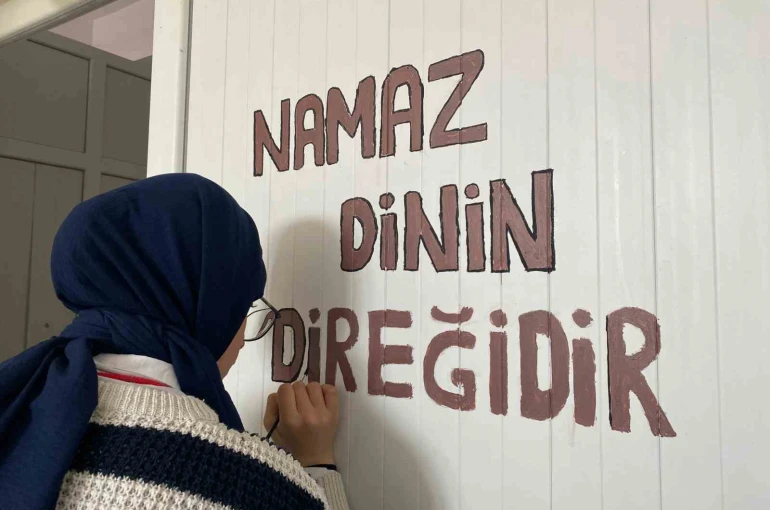 NAMAZ
DİNİN
DİREĞİDİR